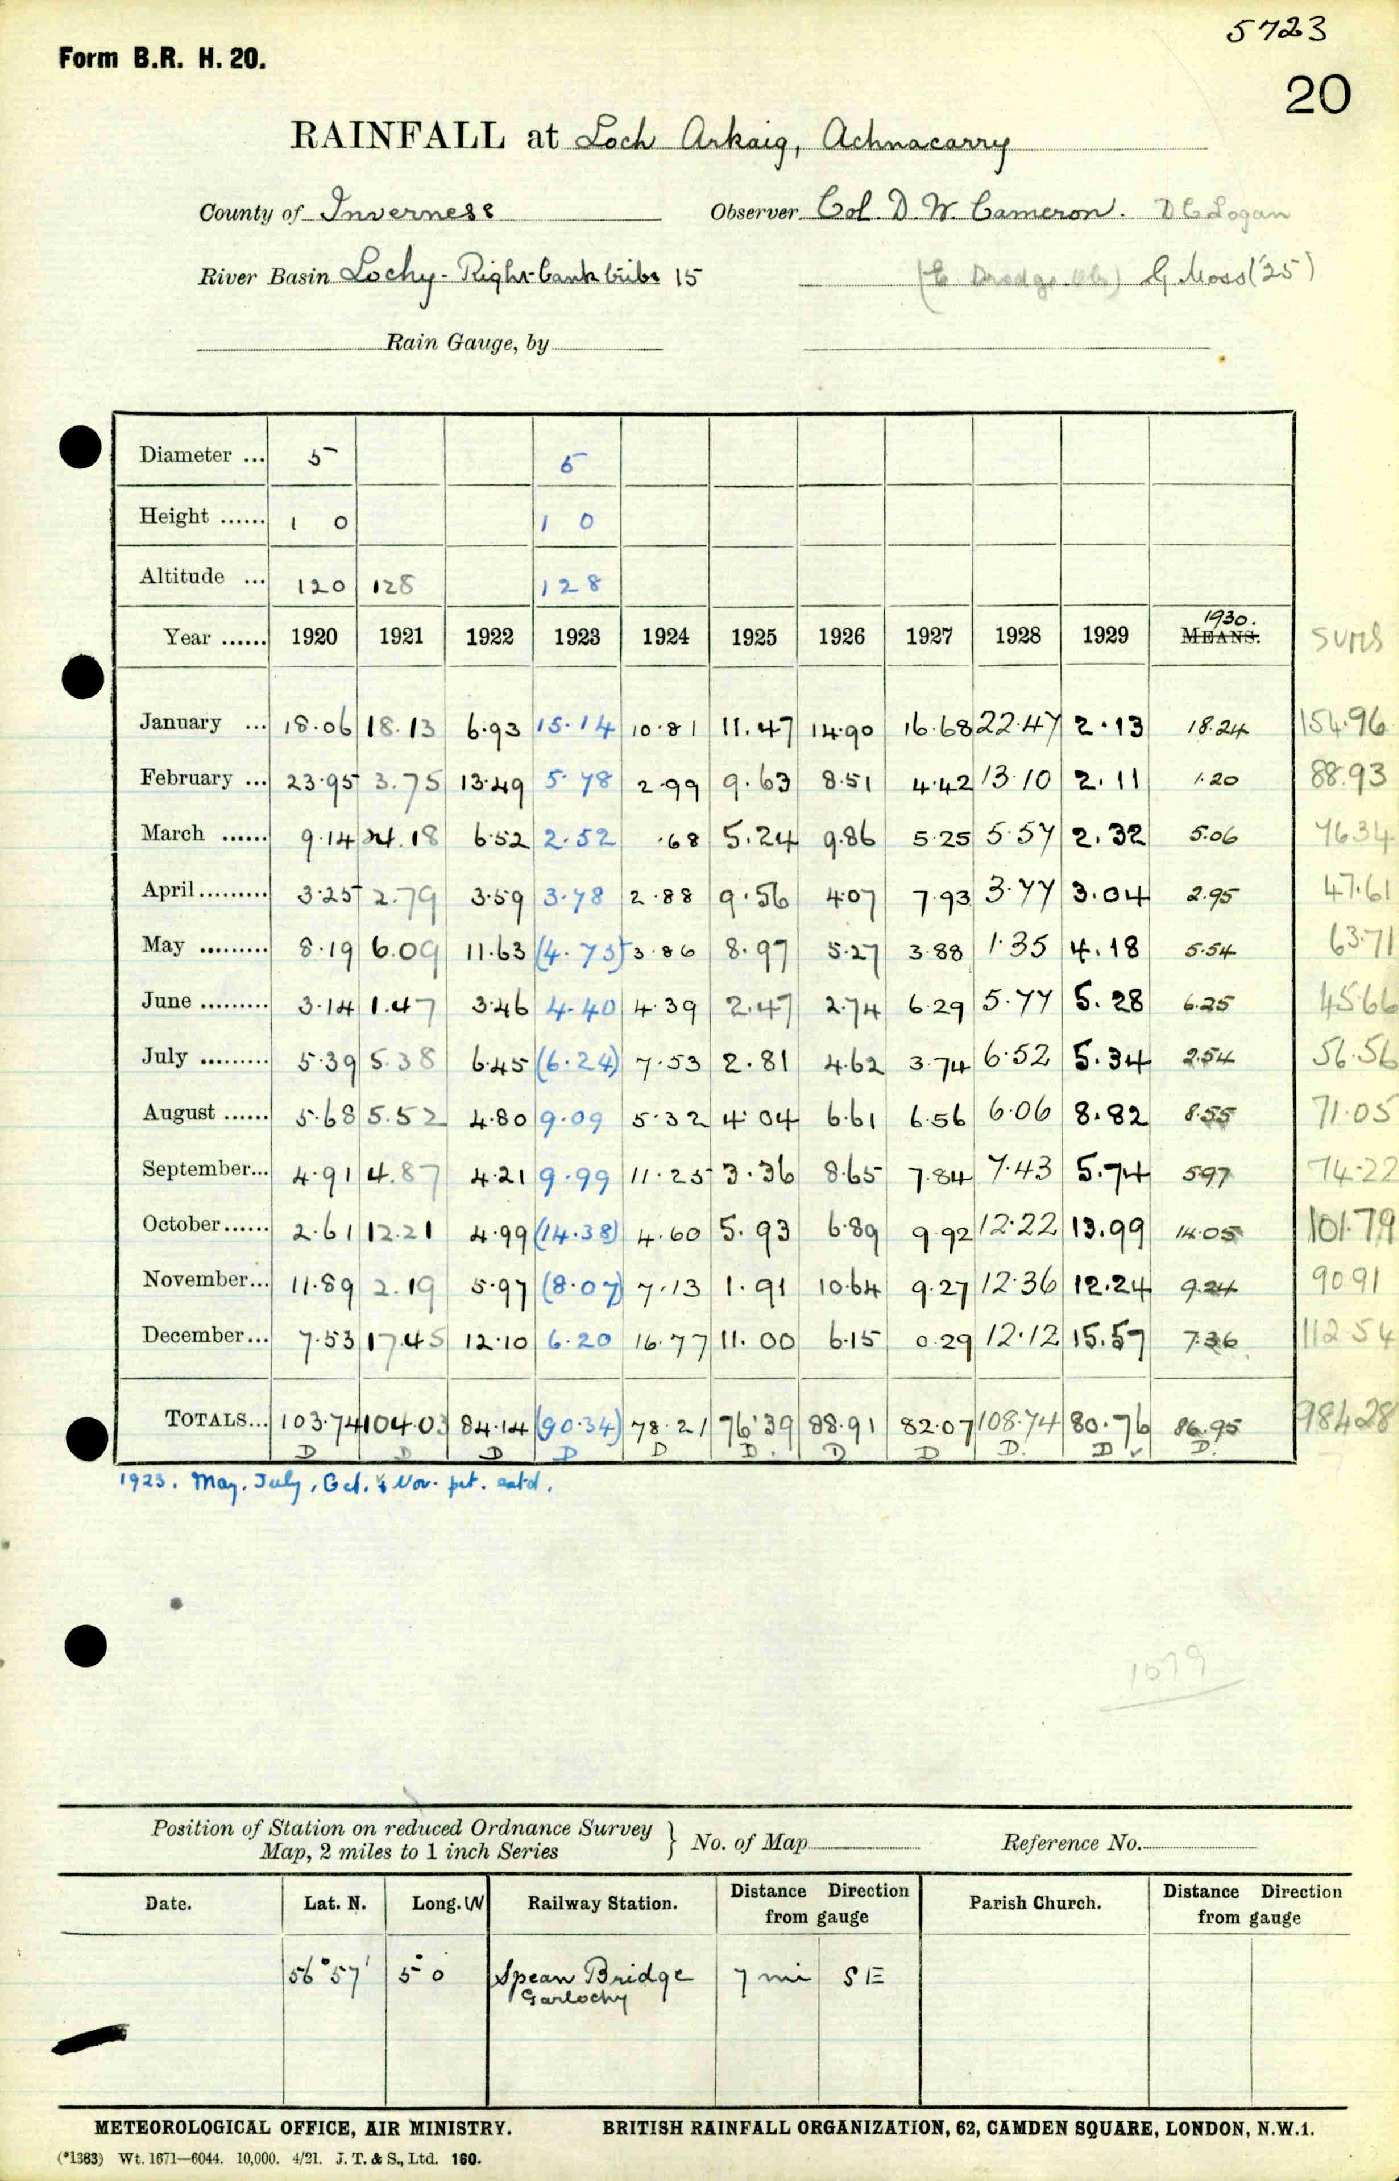 5723
Form B.R. H. 20.
20
RAINFALL at Loch Arkaig, Achnacarry
County of Inverness Observer Col. D. W. Cameron. D C Logan
River Basin Lochy - Right bank tribs 15 G Moss ('25)
Rain Gauge, by
Diameter ... 5 5
Height ...... 1 0 1 0
Altitude ... 120 128 128
1930.
Year ...... 1920 1921 1922 1923 1924 1925 1926 1927 1928 1929 MEANS. SUMS
January ... 18.06 18.13 6.93 15.14 10.81 11.47 14.90 16.68 22.47 2.13 18.24 154.96
February ... 23.95 3.75 13.49 5.78 2.99 9.63 8.51 4.42 13.10 2.11 1.20 88.93
March ...... 9.14 24.18 6.52 2.52 .68 5.24 9.86 5.25 5.57 2.32 5.06 76.34
April ......... 3.25 2.79 3.59 3.78 2.88 9.56 4.07 7.93 3.77 3.04 2.95 47.61
May ......... 8.19 6.09 11.63 (4.75) 3.86 8.97 5.27 3.88 1.35 4.18 5.54 63.71
June ......... 3.14 1.47 3.46 4.40 4.39 2.47 2.74 6.29 5.77 5.28 6.25 45.66
July ......... 5.39 5.38 6.45 (6.24) 7.53 2.81 4.62 3.74 6.52 5.34 2.54 56.56
August ...... 5.68 5.52 4.80 9.09 5.32 4.04 6.61 6.56 6.06 8.82 8.55 71.05
September... 4.91 4.87 4.21 9.99 11.25 3.36 8.65 7.84 7.43 5.74 5.97 74.22
October...... 2.61 12.21 4.99 (14.38) 4.60 5.93 6.89 9.92 12.22 13.99 14.05 101.79
November... 11.89 2.19 5.97 (8.07) 7.13 1.91 10.64 9.27 12.36 12.24 9.24 90.91
December... 7.53 17.45 12.10 6.20 16.77 11.00 6.15 0.29 12.12 15.57 7.36 112.54
TOTALS... 103.74 104.03 84.14 (90.34) 78.21 76.39 88.91 82.07 108.74 80.76 86.95 984.28
D D D D D D. D D D. D ✓ D.
1923. May, July, Oct. & Nov. prt. estd.
1079
Position of Station on reduced Ordnance Survey
Map, 2 miles to 1 inch Series } No. of Map Reference No.
Date. Lat. N. Long. W Railway Station. Distance Direction from gauge Parish Church. Distance Direction from gauge
56°57' 5°0 Spean Bridge 7 mi SE
Gairlochy
METEOROLOGICAL OFFICE, AIR MINISTRY. BRITISH RAINFALL ORGANIZATION, 62, CAMDEN SQUARE, LONDON, N.W.1.
(*1383) Wt. 1671—6044. 10,000. 4/21. J. T. & S., Ltd. 160.